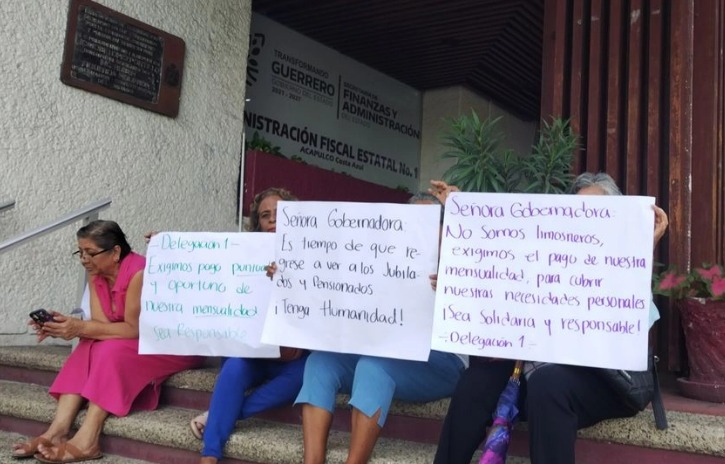 TRANSFORMANDO
GUERRERO
GOBIERNO DEL ESTADO
2021 - 2027
SECRETARÍA DE
FINANZAS Y
ADMINISTRACIÓN
DEL ESTADO
MINISTRACIÓN FISCAL ESTATAL No. 1
ACAPULCO Costa Azul
-Delegación 1-
Exigimos pago puntual
y oportuno de
nuestra mensualidad
Sea Responsable
Señora Gobernadora:
Es tiempo de que re
grese a ver a los Jubila-
dos y Pensionados
¡Tenga Humanidad!
Señora Gobernadora:
No Somos limosneros,
exigimos el pago de nuestra
mensualidad, para cubrir
nuestras necesidades personales
¡Sea Solidaria y responsable!
-Delegación 1-